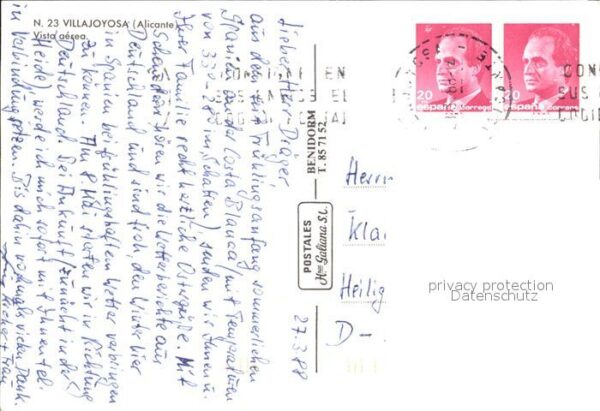 N. 23 VILLAJOYOSA (Alicante)
Vista aérea.
Lieber Herr Dräger,
aus dem seit Frühlingsanfang sommerlichen
Spanien an der Costa Blanca (mit Temperaturen
von 33 im Schatten) senden wir Ihnen u.
Ihrer Familie recht herzliche Ostergrüße. Mit
hören wir die Wetterberichte aus
Deutschland und sind froh, den Winter hier
in Spanien bei frühlingshaftem Wetter verbringen
zu können. Am 8. Mai starten wir in Richtung
Deutschland. Bei Ankunft (zunächst in der
Heide) werde ich mich sofort mit Ihnen tel.
in Verbindung setzen. Bis dahin nochmals vielen Dank.
Ihre + Frau
27.3.88
POSTALES
Hnos Galiana S.L.
BENIDORM
T. 85 71 52
20
españa
correos
20
españa
correos
Herrn
Kla
Heilig
D-
privacy protection
Datenschutz